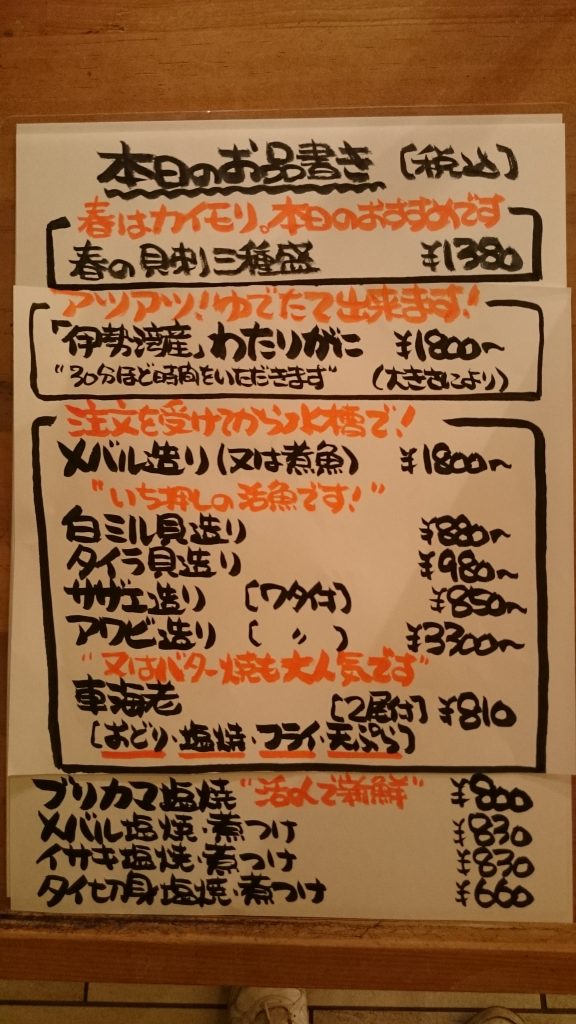 本日のお品書き [税込]
春はカイモリ。本日のおすすめです
春の貝刺三種盛 ¥1380
アツアツ!ゆでたて出来ます!
「伊勢湾産」わたりがに ¥1800〜
"30分ほど時間をいただきます" (大きさにより)
注文を受けてから水槽で!
メバル造り(又は煮魚) ¥1800〜
"いち押しの活魚です!"
白ミル貝造り ¥880〜
タイラ貝造り ¥980〜
サザエ造り [ワタ付] ¥850〜
アワビ造り [ 〃 ] ¥3300〜
"又はバター焼も大人気です"
車海老 [2尾付] ¥810
[おどり・塩焼・フライ・天ぷら]
ブリカマ塩焼 ¥800
メバル塩焼・煮つけ ¥830
イサキ塩焼・煮つけ ¥830
タイ切身塩焼・煮つけ ¥660